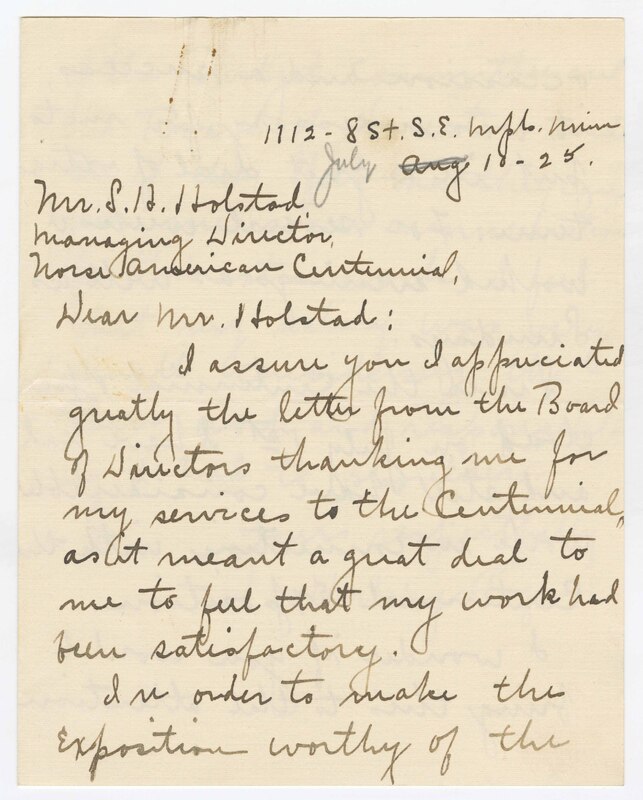 1112 - 8 St. S.E. Mpls. Minn
July Aug 10 - 25.
Mr. S. H. Holstad
Managing Director,
Norse American Centennial,
Dear Mr. Holstad:
I assure you I appreciated
greatly the letter from the Board
of Directors thanking me for
my services to the Centennial,
as it meant a great deal to
me to feel that my work had
been satisfactory.
In order to make the
Exposition worthy of the